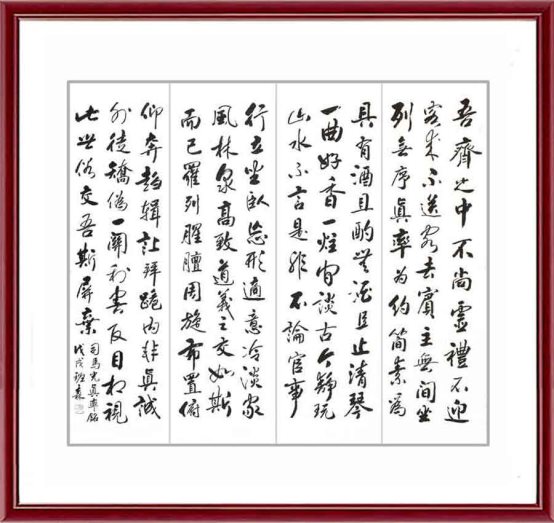 吾齋之中不尚虛禮不迎
客來不送客去賓主無間坐
列無序真率为約簡素為
具有酒且酌無酒且止清琴
一曲好香一炷閒談古今靜玩
山水不言是非不論官事
行立坐臥忘形適意冷淡家
風林泉高致道義之交如斯
而已羅列腥膻周旋布置俯
仰奔趨揖讓拜跪内非真誠
外徒矯偽一關利害反目相視
此世俗交吾斯屏棄
司馬光真率銘
戊戌 森